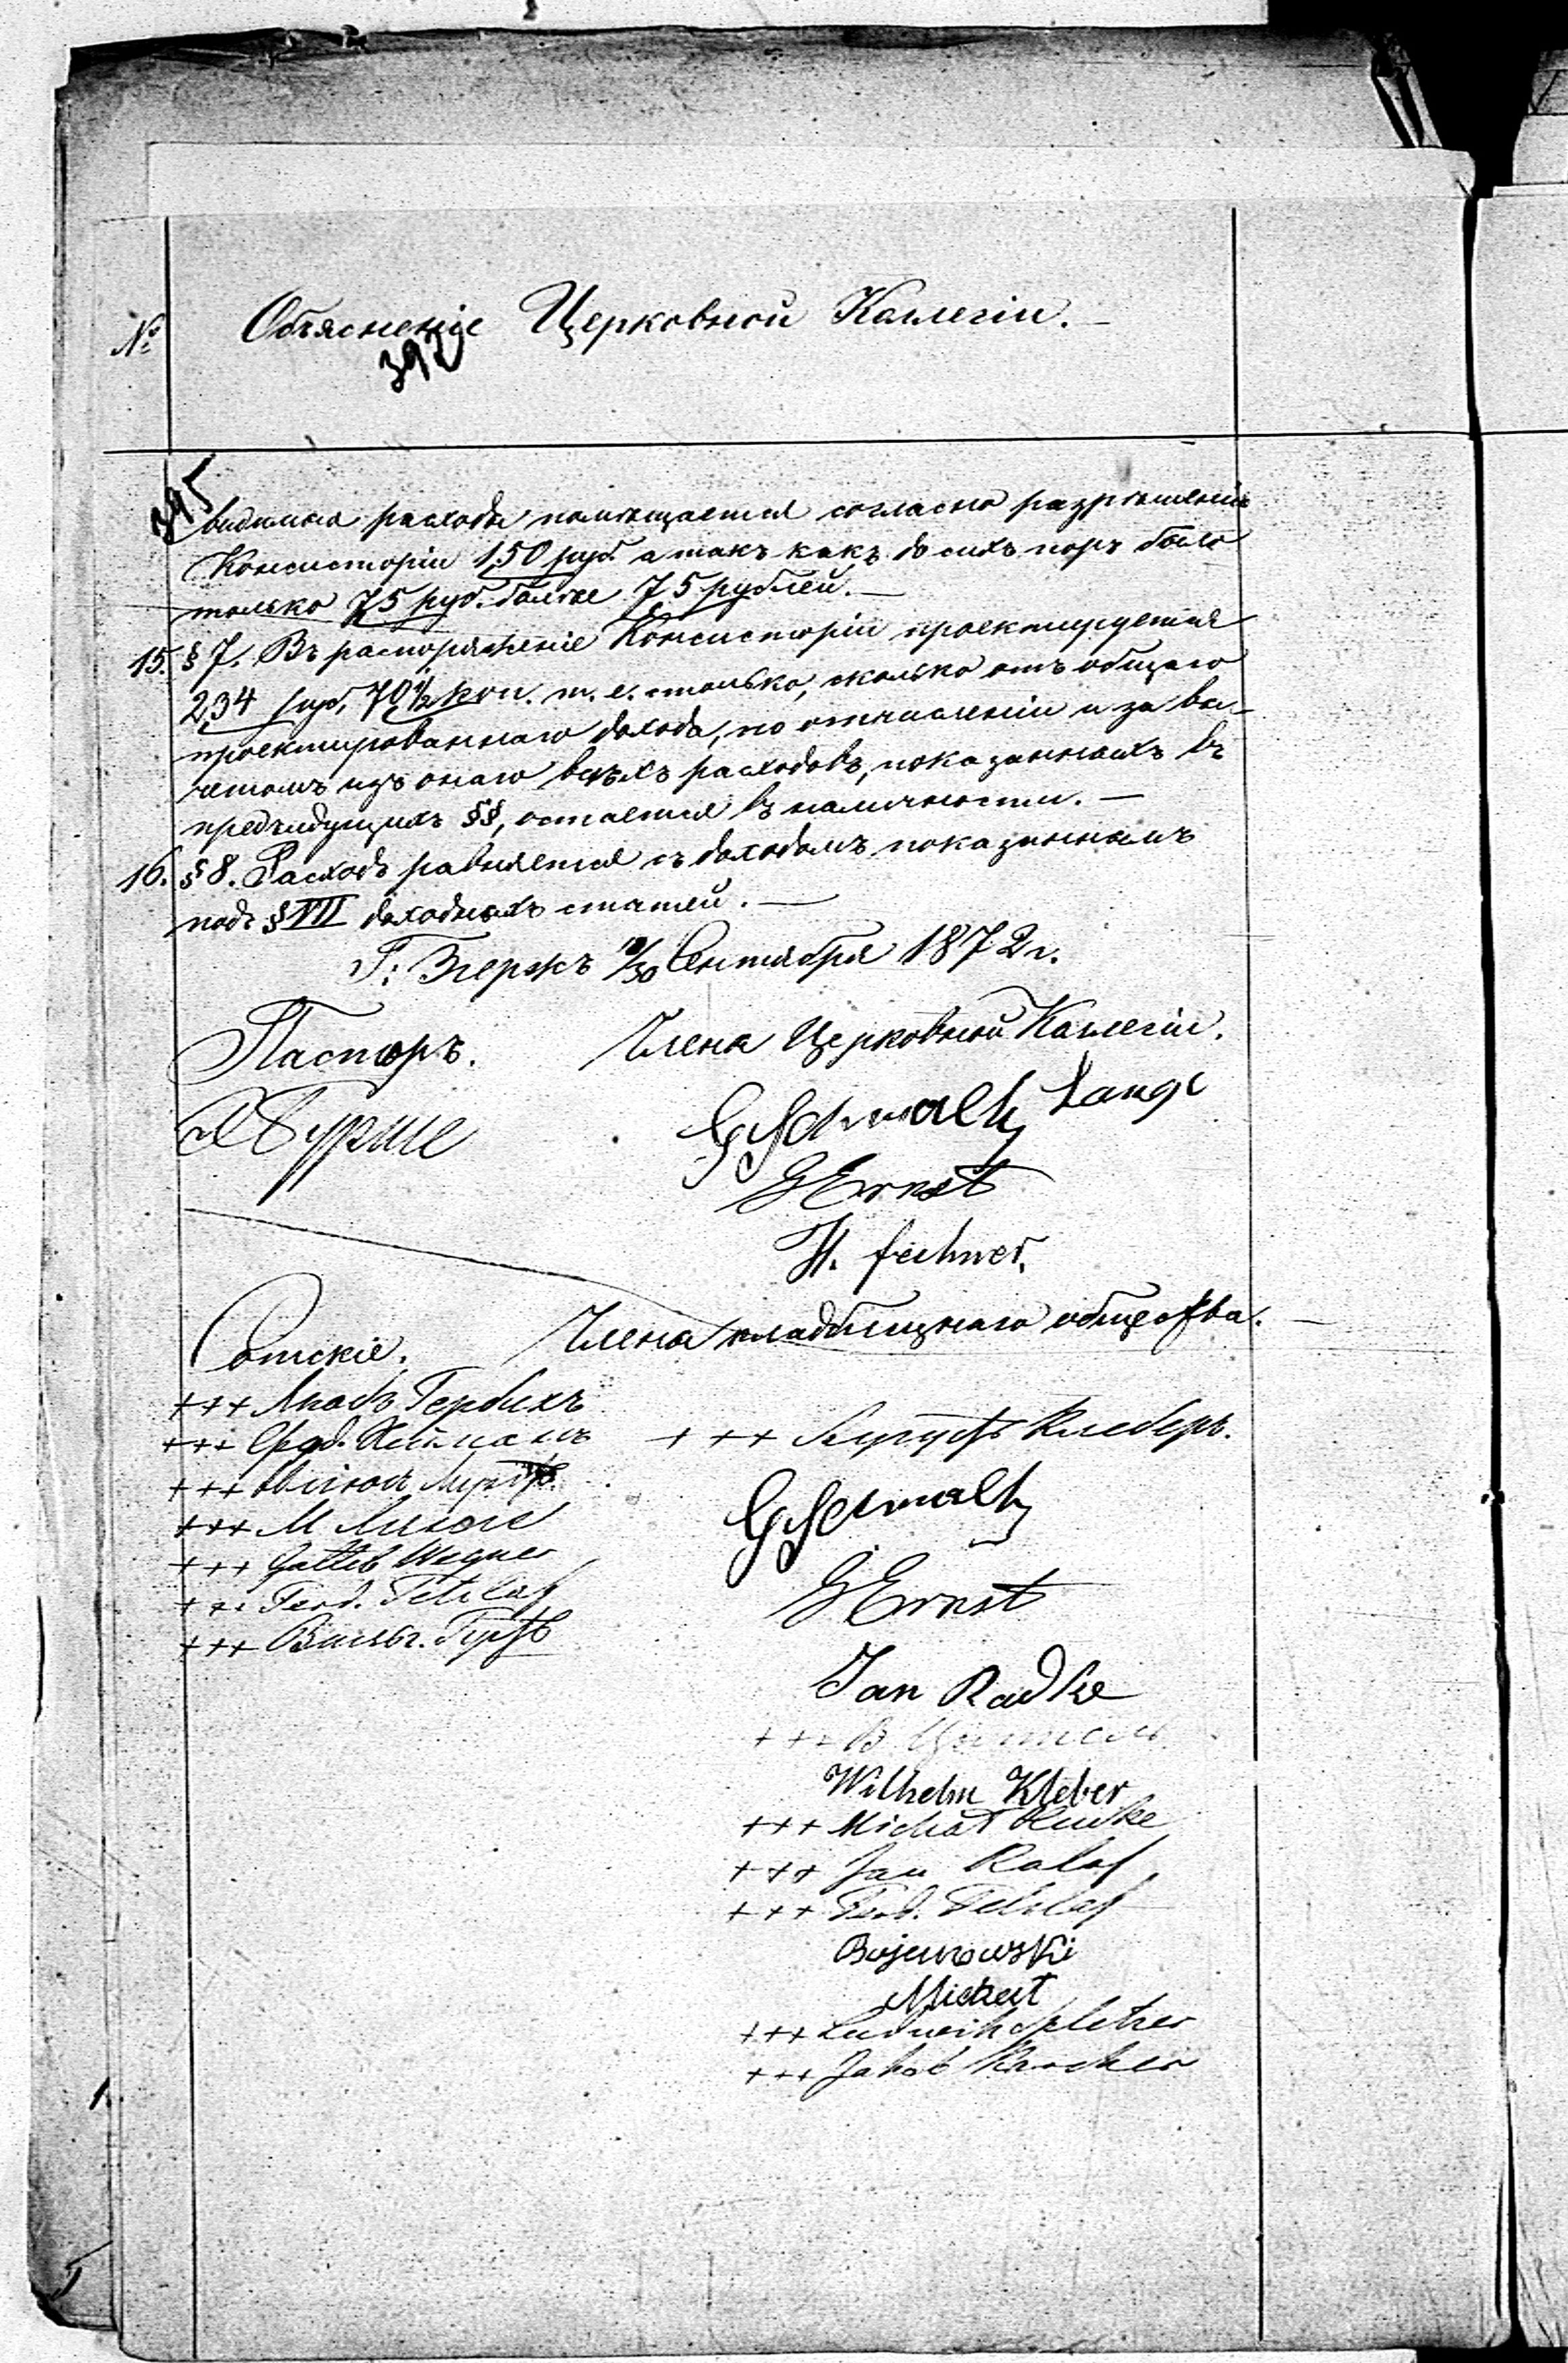 №
Объясненіе Церковной Коллегіи. —
392
395
видимые расходы помѣщается согласно разрѣшенію
Консисторіи 150 руб. а такъ какъ до сихъ поръ было
только 75 руб. болѣе 75 рублей. —
15. § 7. Въ распоряженіе Консисторіи проектируется
234 руб. 70½ коп. т. е. столько, сколько отъ общаго
проектированнаго дохода, по отчисленіи и за вы-
четомъ изъ онаго всѣхъ расходовъ, показанныхъ въ
предъидущихъ §§, остается въ наличности. —
16. § 8. Расходъ равняется съ доходомъ показаннымъ
подъ § VII доходныхъ статей. —
Г. Згержъ 18/30 Сентября 1872 г.
Пасторъ. Члены Церковной Коллегіи.
G Schwaltz Lange
G Ernst
H. Fechner.
Сотскіе. Члены кладбищнаго общества. —
+++ Гербихъ
+++
+++
+++ М
+++ Gottlib Wagner
+++ Ferd. Tetzlaf
+++ Вильг.
+++ Августъ Клеберъ.
G Schwaltz
G Ernst
Jan Radke
+++ В.
Wilhelm Kleber
+++ Michał
+++ Jan
+++ Ferd. Tetzlaf
Bojanowski
+++ Ludwik
+++ Jakob